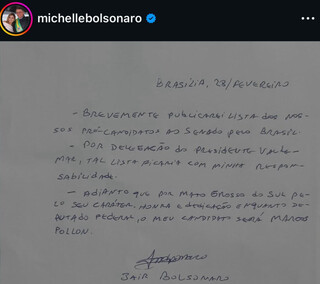 michellebolsonaro
BRASÍLIA, 28/FEVEREIRO
- BREVEMENTE PUBLICAREI LISTA DOS NOS-
SOS PRÉ-CANDIDATOS AO SENADO PELO BRASIL.
- POR DELEGAÇÃO DO PRESIDENTE VALDE-
MAR, TAL LISTA FICARIA COM MINHA RESPON-
SABILIDADE.
- ADIANTO QUE POR MATO GROSSO DO SUL PE-
LO SEU CARÁTER, HONRA E DEDICAÇÃO ENQUANTO DE-
PUTADO FEDERAL, O MEU CANDIDATO SERÁ MARCOS
POLLON.
JAIR BOLSONARO